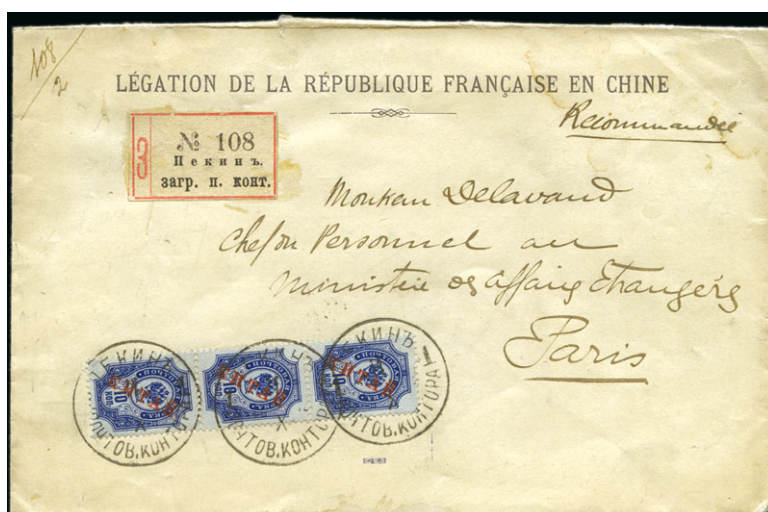 108
2
LÉGATION DE LA RÉPUBLIQUE FRANÇAISE EN CHINE
Recommandée
З
№ 108
Пекинъ.
загр. п. конт.
Delavaud
Chef du Personnel au
Ministère des Affaires Étrangères
Paris
ПЕКИНЪ
ПОЧТОВ. КОНТОРА
КИТАЙ
10
ПЕКИНЪ
ПОЧТОВ. КОНТОРА
КИТАЙ
10
ПЕКИНЪ
ПОЧТОВ. КОНТОРА
КИТАЙ
10